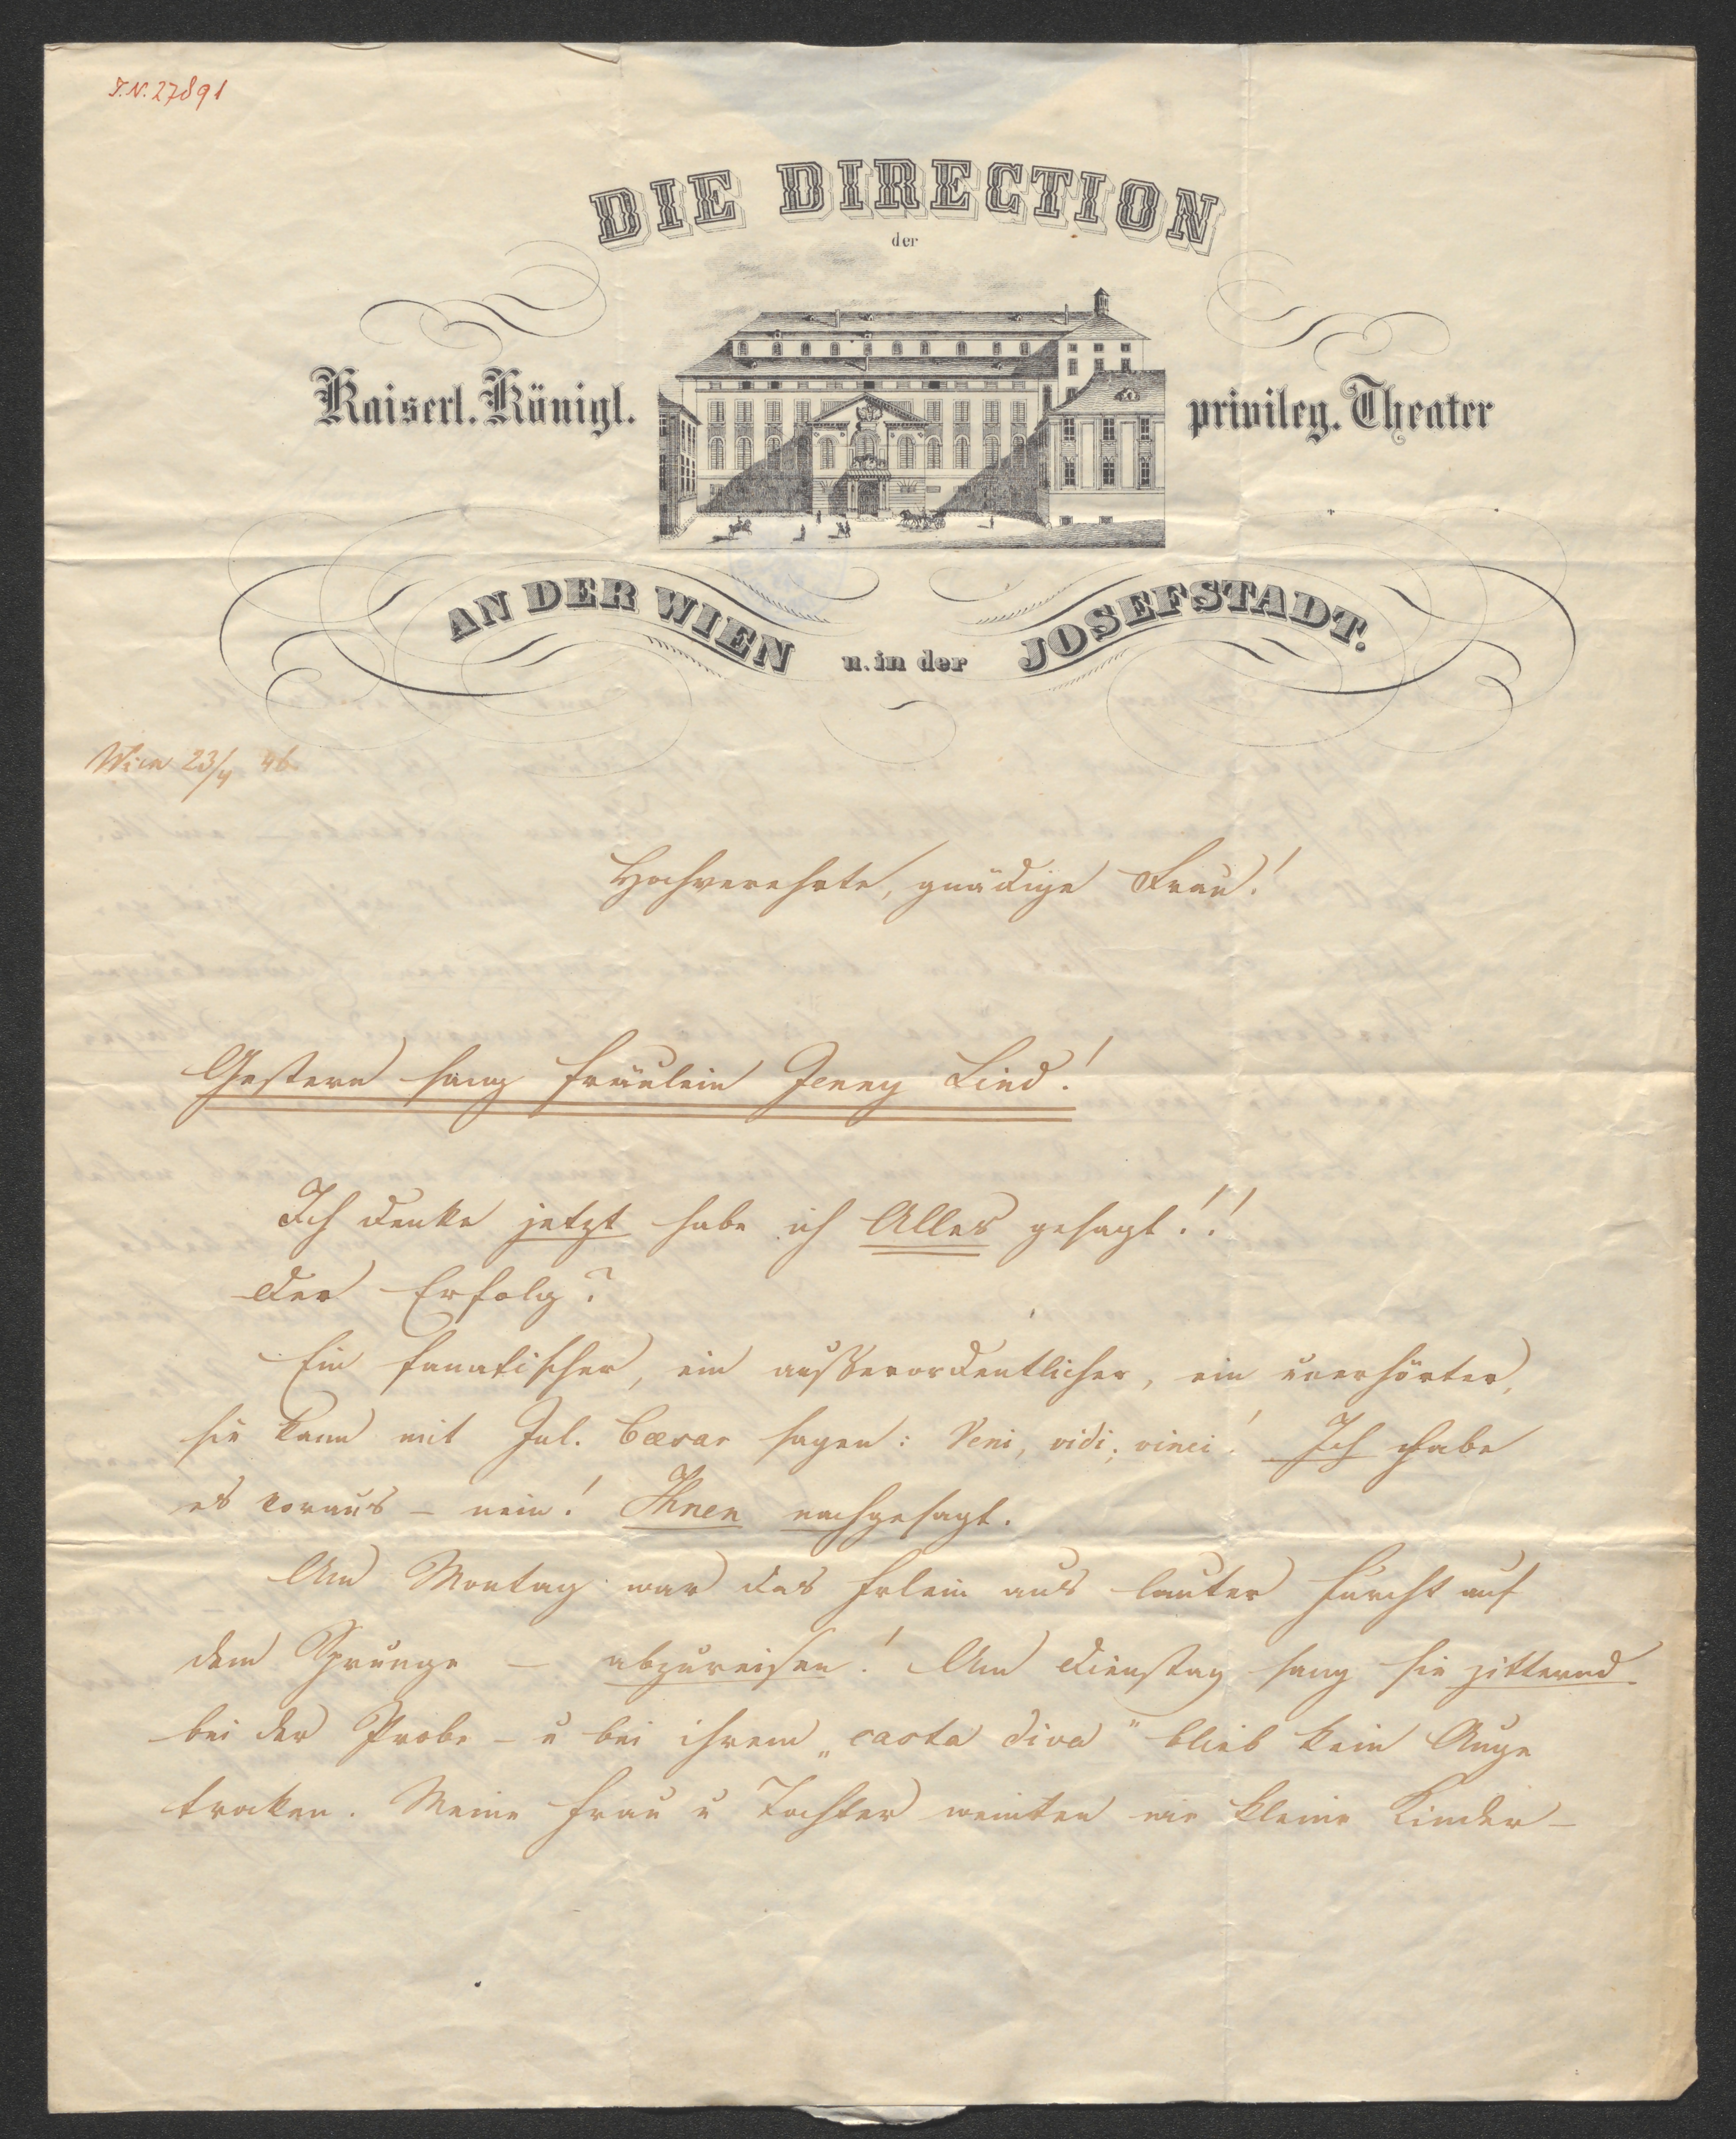 I.N. 27891
DIE DIRECTION
der
Kaiserl. Königl. privileg. Theater
AN DER WIEN u. in der JOSEFSTADT.
Wien 23/4 46.
Hochverehrte, gnädige Frau!
Gestern sang Fräulein Jenny Lind!
Ich denke jetzt habe ich Alles gesagt!!
Der Erfolg?
Ein fanatischer, ein außerordentlicher, ein unerhörter,
sie kann mit Jul. Caesar sagen: Veni, vidi, vinci! Ich habe
es voraus – nein! Ihnen nachgesagt.
Am Montag war das Frlein aus lauter Furcht auf
dem Sprunge – abzureisen! Am Dienstag sang sie zitternd
bei der Probe – u bei ihrem „casta diva" blieb kein Auge
trocken. Meine Frau u Tochter weinten wie kleine Kinder –